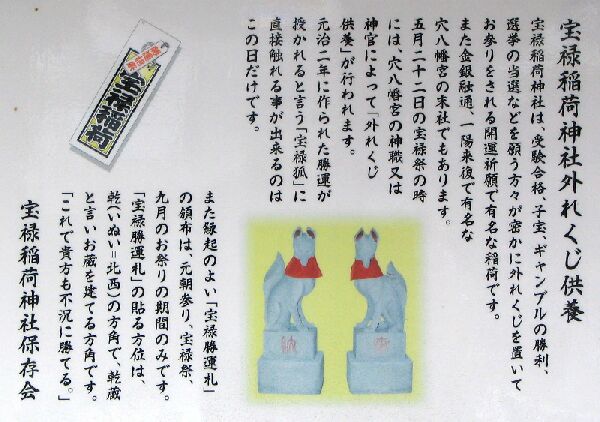 宝禄稲荷神社外れくじ供養
宝禄稲荷神社は、受験合格、子宝、ギャンブルの勝利、
選挙の当選などを願う方々が密かに外れくじを置いて
お参りをされる開運祈願で有名な稲荷です。
また金銀融通、一陽来復で有名な
穴八幡宮の末社でもあります。
五月二十二日の宝禄祭の時
には、穴八幡宮の神職又は
神官によって「外れくじ
供養」が行われます。
元治二年に作られた勝運が
授かれると言う「宝禄狐」に
直接触れる事が出来るのは
この日だけです。
また縁起のよい「宝禄勝運札」
の領布は、元朝参り、宝禄祭、
九月のお祭りの期間のみです。
「宝禄勝運札」の貼る方位は、
乾(いぬい=北西)の方角で、乾蔵
と言いお蔵を建てる方角です。
「これで貴方も不況に勝てる。」
宝禄稲荷神社保存会
宝禄稲荷